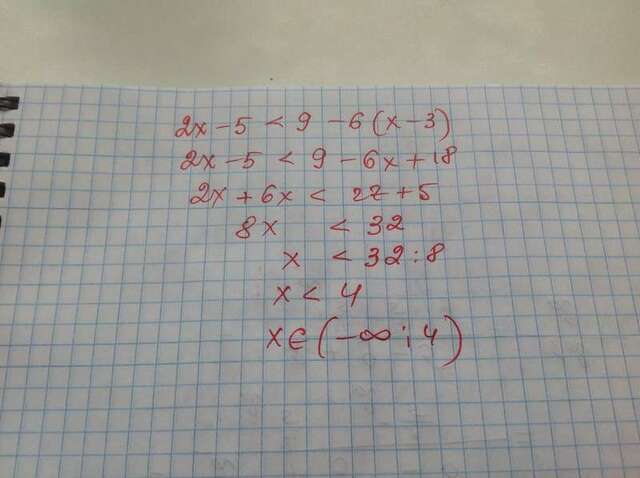 2x - 5 < 9 - 6(x - 3)
2x - 5 < 9 - 6x + 18
2x + 6x < 27 + 5
8x < 32
x < 32 : 8
x < 4
x ∈ (-∞ ; 4)